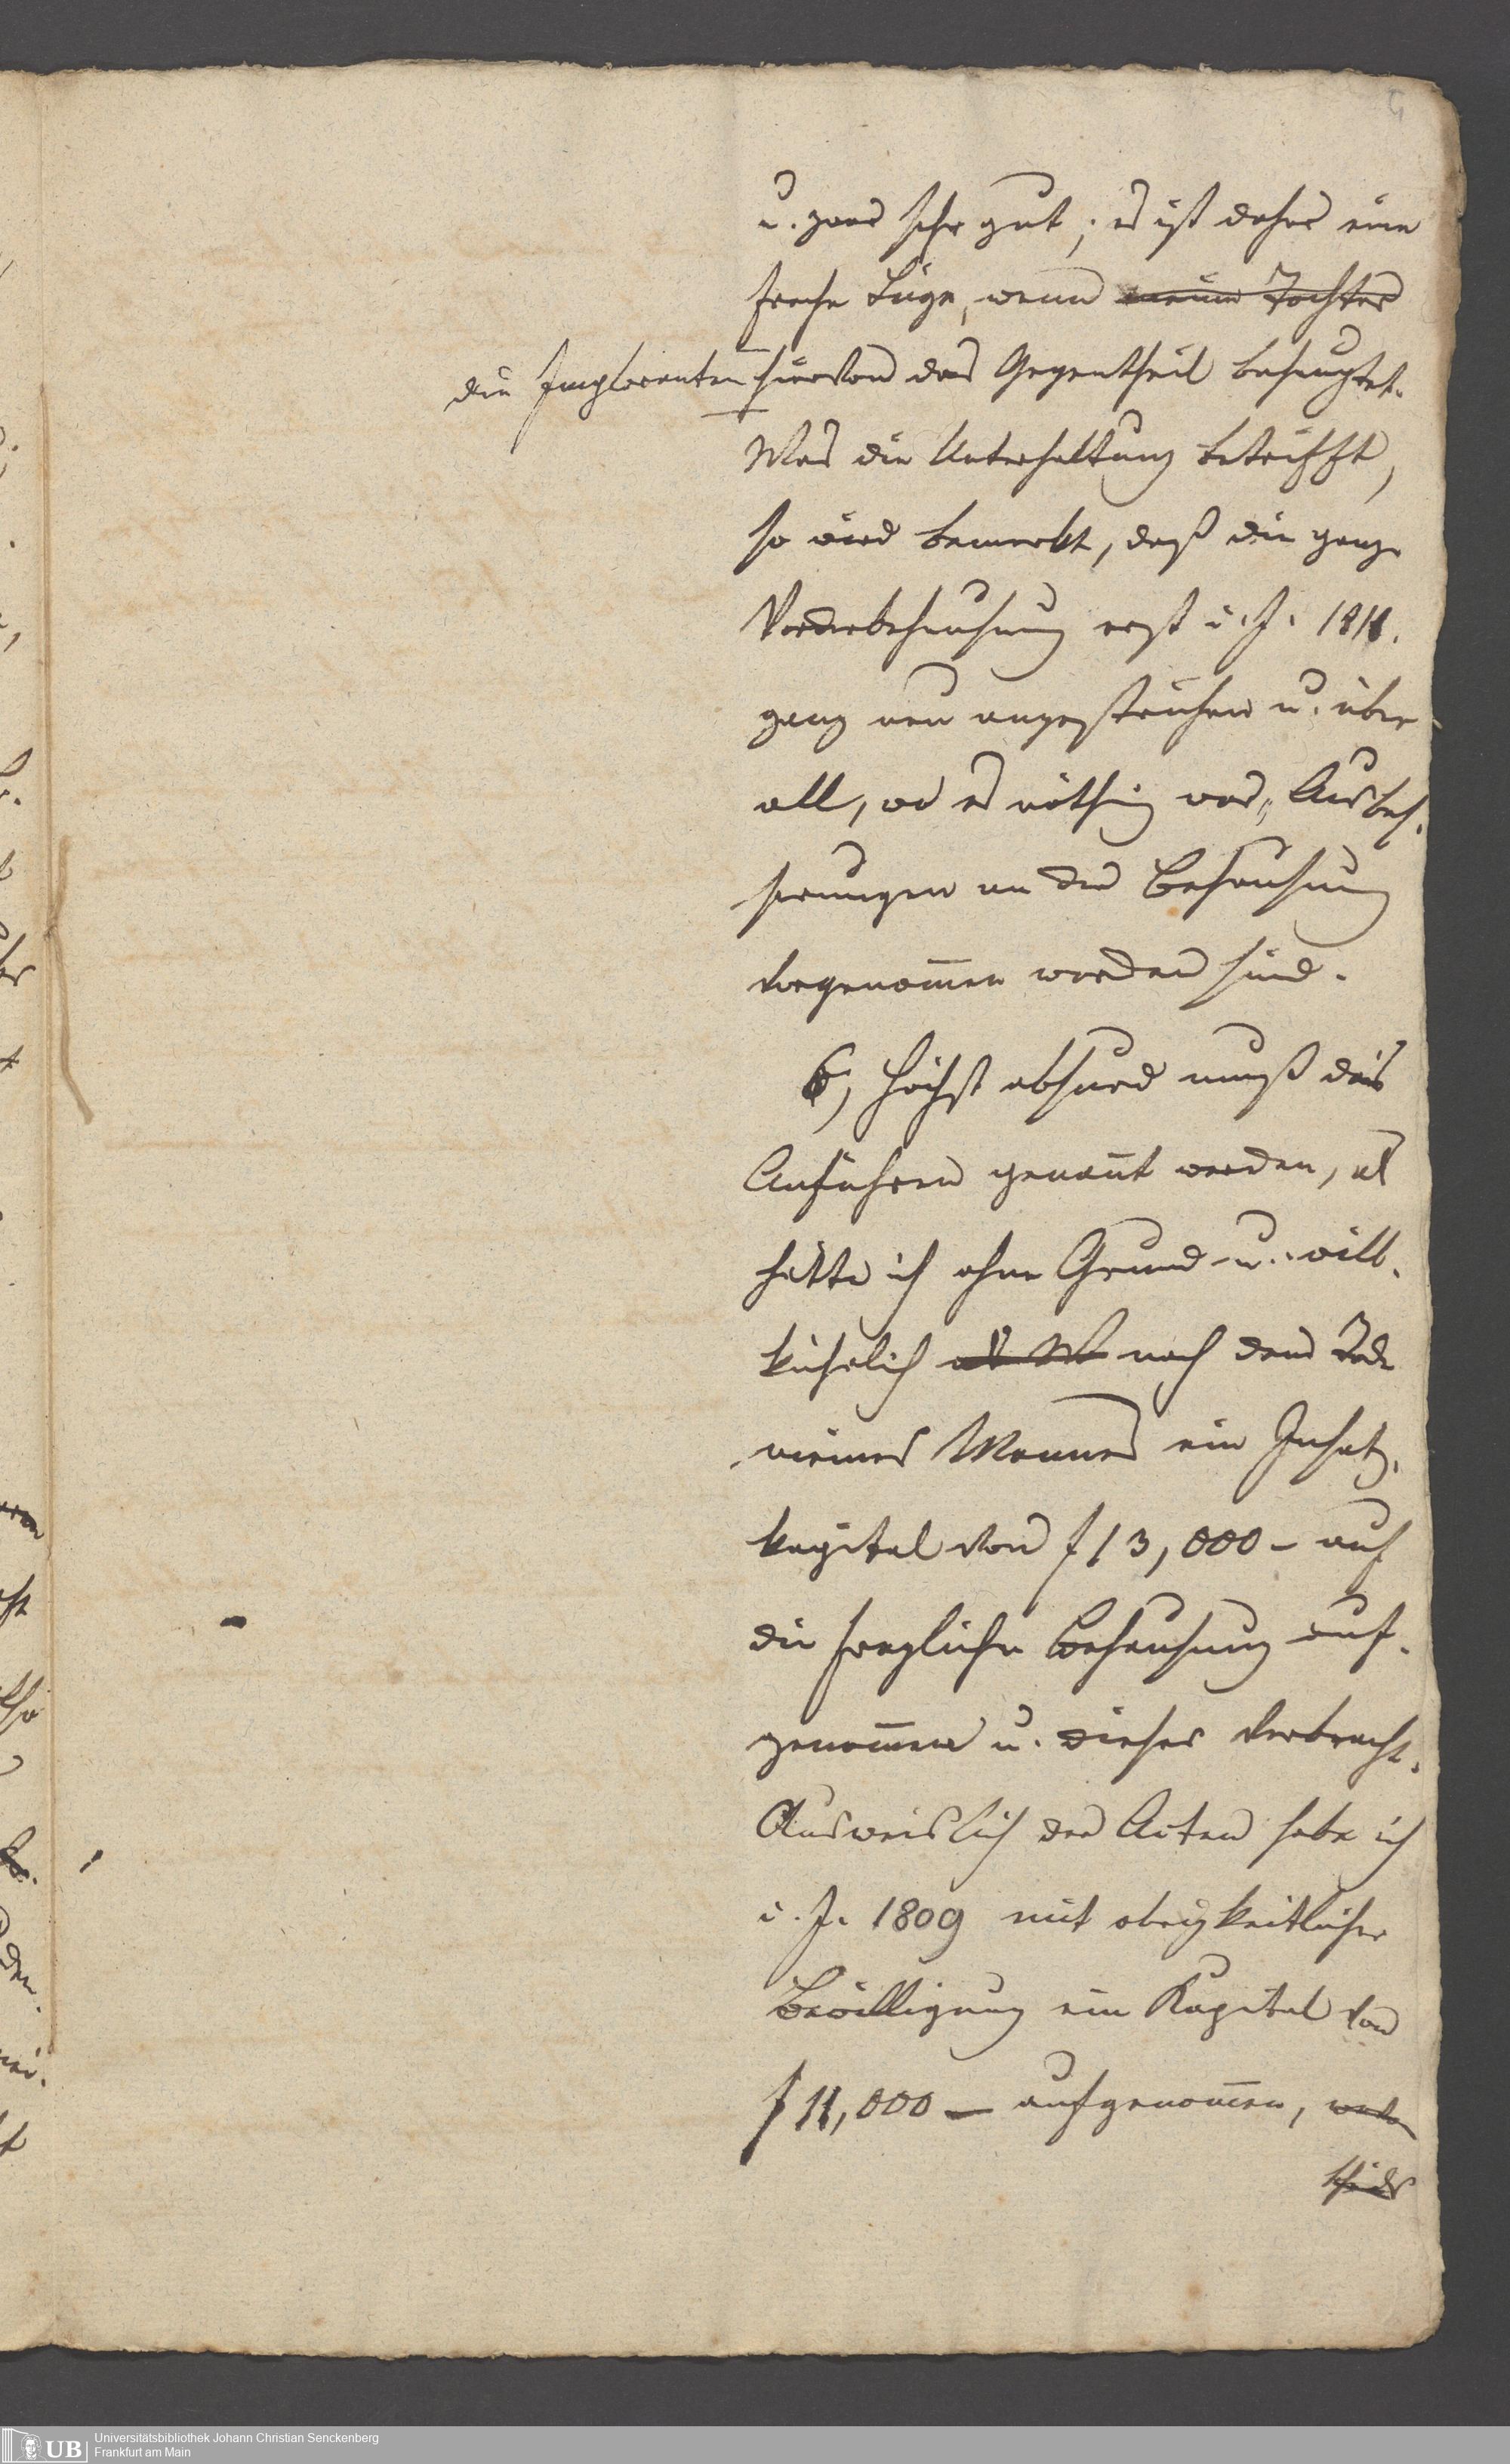 u. zwar sehr gut; es ist daher eine
freche Lüge, wenn meine Tochter
die Imploranten hiervon das Gegentheil behauptet.
Was die Unterhaltung betrifft,
so wird bemerkt, daß die ganze
Vorderbehausung erst i. J. 1811.
ganz neu angestrichen u. über-
all, wo es nöthig war, Ausbes-
serungen an der Behausung
vorgenom̅en worden sind.
6, Höchst absurd muß das
Anführen genan̅t werden, als
hätte ich ohne Grund u. will-
kührlich nach dem Tode
meines Mannes ein Insatz-
kapital von f 13,000 – auf
die fragliche Behausung auf-
genom̅en u. dieses verbracht.
Ausweislich der Acten habe ich
i. J. 1809 mit obrigkeitlicher
Bewilligung ein Kapital von
f 11,000 — aufgenom̅en,
Universitätsbibliothek Johann Christian Senckenberg
Frankfurt am Main
UB